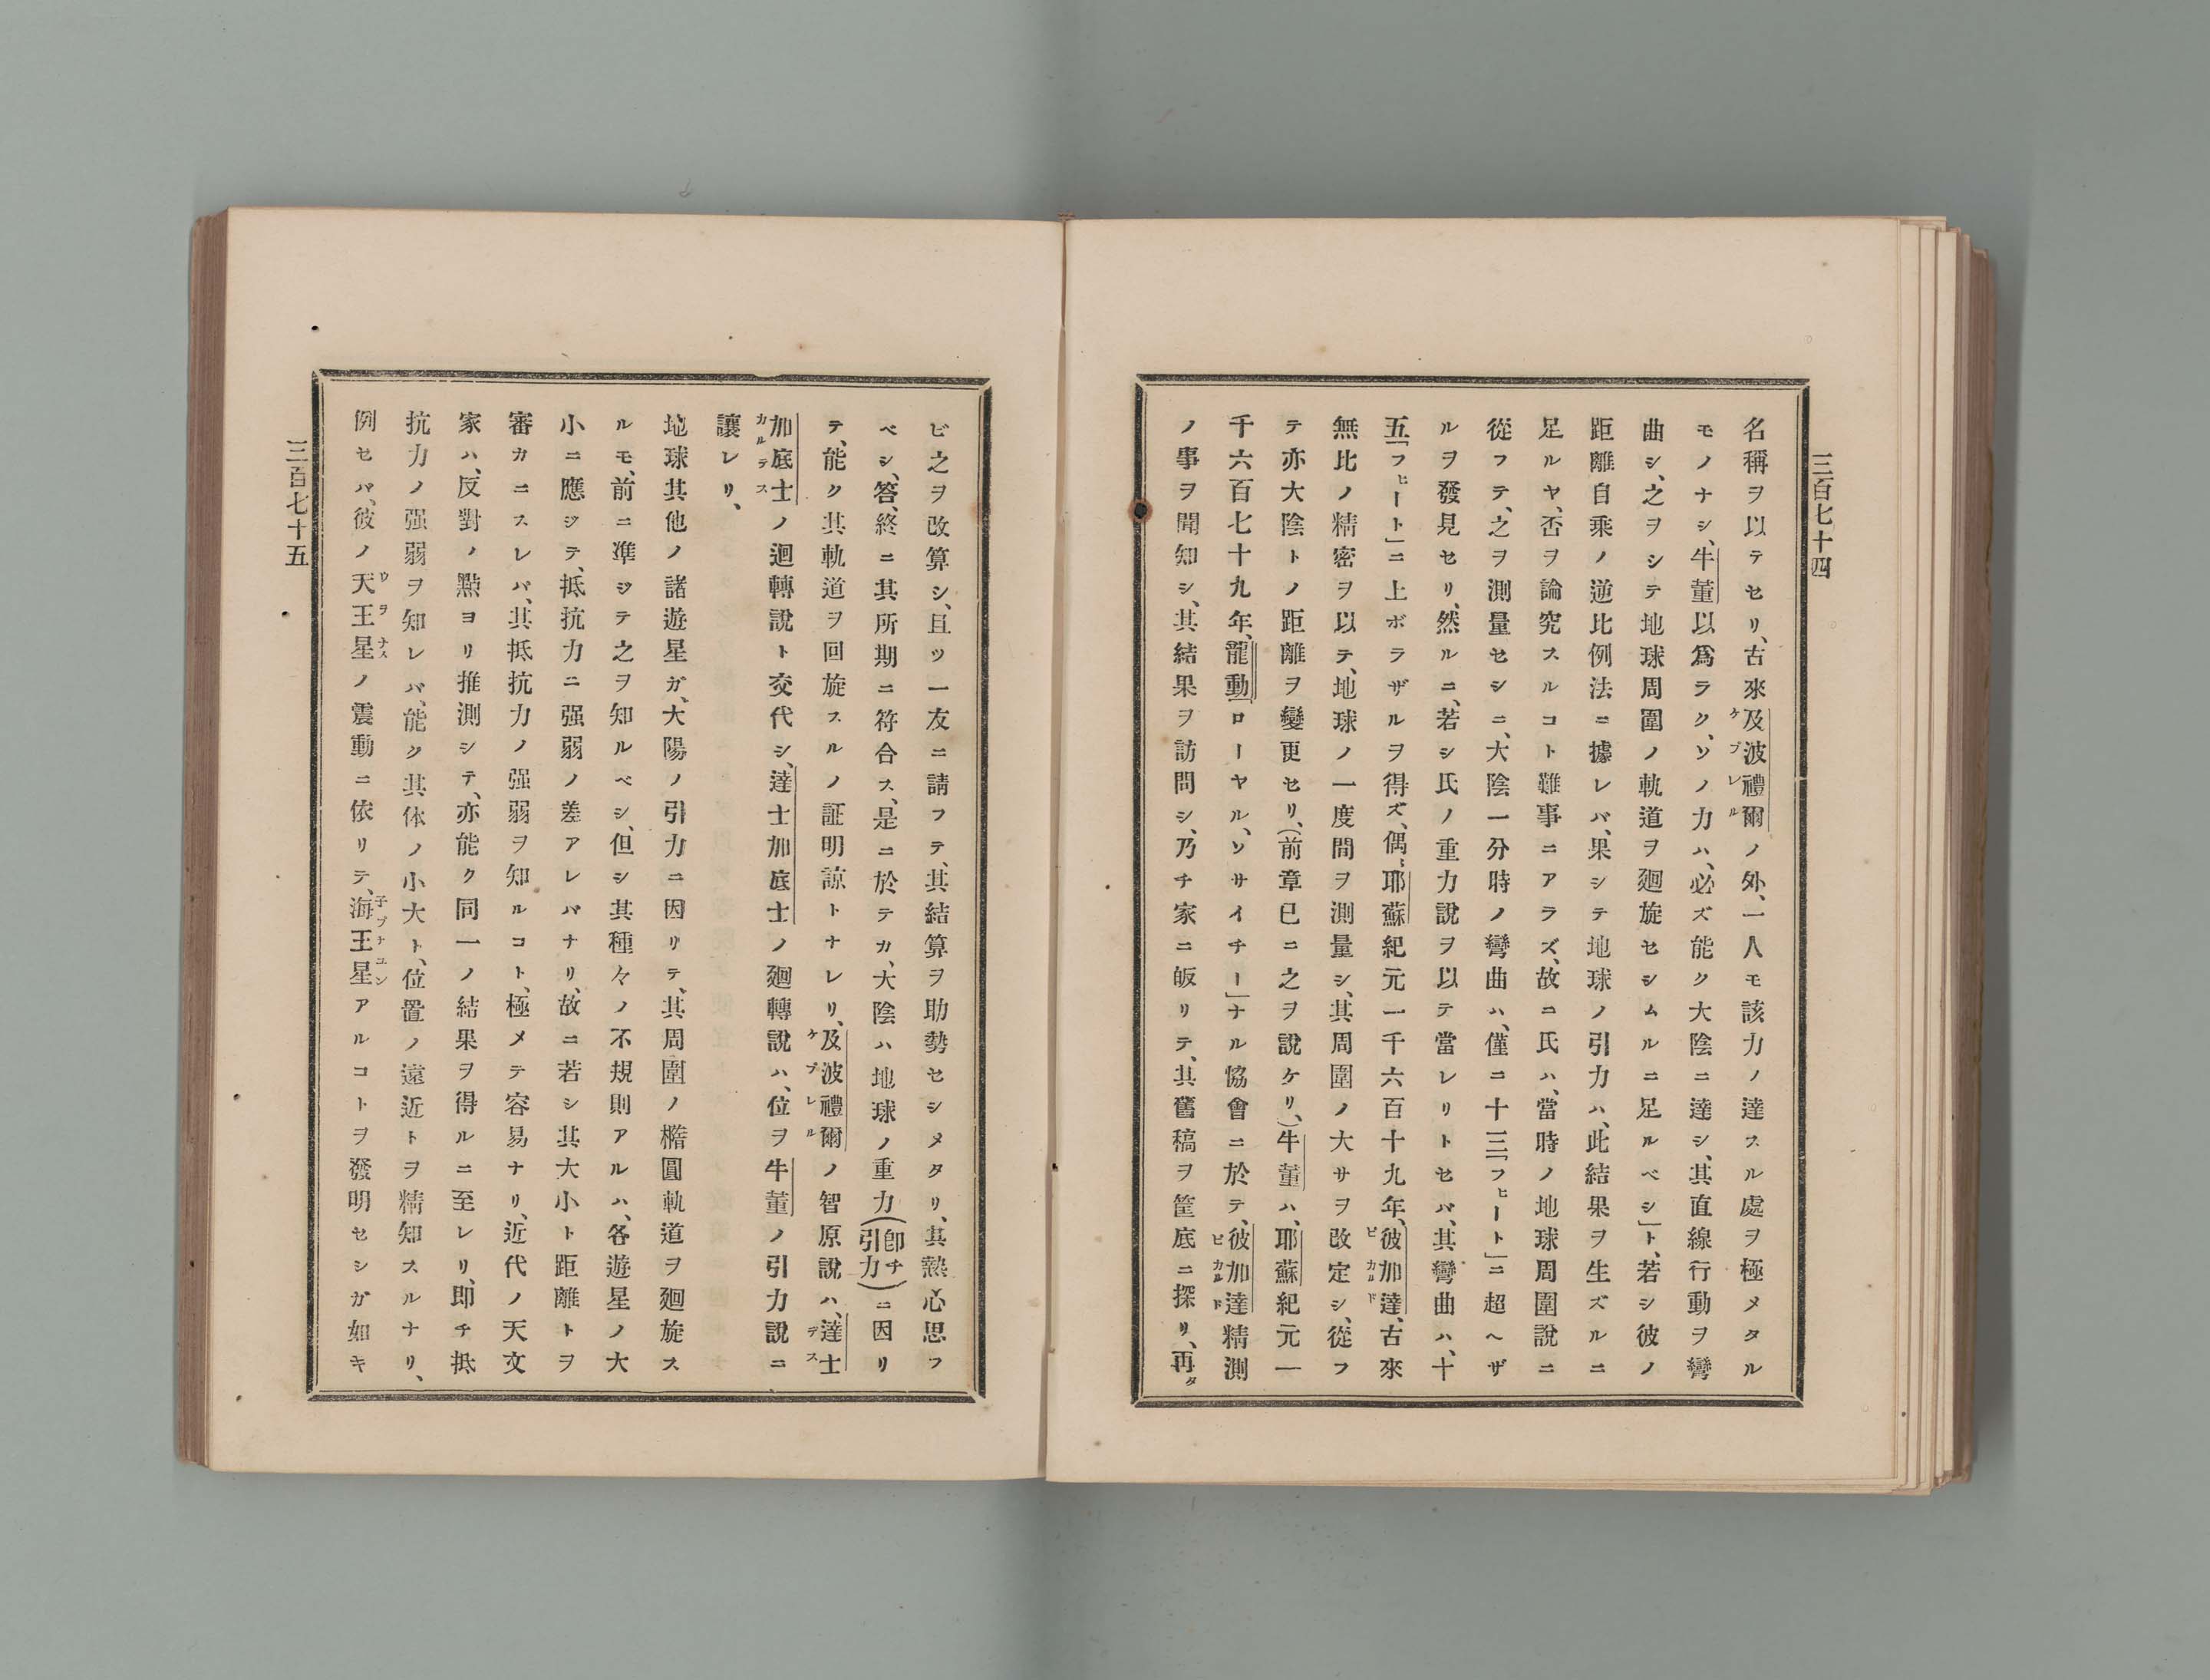 三百七十四
名稱ヲ以テセリ、古來及波禮爾ノ外、一人モ該力ノ達スル處ヲ極メタル
ケプレル
モノナシ、牛董以爲ラク、ソノ力ハ、必ズ能ク大陰ニ達シ、其直線行動ヲ彎
曲シ、之ヲシテ地球周圍ノ軌道ヲ廻旋セシムルニ足ルベシ」ト、若シ彼ノ
距離自乘ノ逆比例法ニ據レバ、果シテ地球ノ引力ハ、此結果ヲ生ズルニ
足ルヤ、否ヲ論究スルコト難事ニアラズ、故ニ氏ハ、當時ノ地球周圍說ニ
從フテ、之ヲ測量セシニ、大陰一分時ノ彎曲ハ、僅ニ十三「フヒート」ニ超ヘザ
ルヲ發見セリ、然ルニ、若シ氏ノ重力說ヲ以テ當レリトセバ、其彎曲ハ、十
五「フヒート」ニ上ボラザルヲ得ズ、偶〻耶蘇紀元一千六百十九年、彼加達、古來
ピカルド
無比ノ精密ヲ以テ、地球ノ一度間ヲ測量シ、其周圍ノ大サヲ改定シ、從フ
テ亦大陰トノ距離ヲ變更セリ、(前章已ニ之ヲ說ケリ、)牛董ハ、耶蘇紀元一
千六百七十九年、龍動「ローヤル、ソサイチー」ナル協會ニ於テ、彼加達精測
ピカルド
ノ事ヲ聞知シ、其結果ヲ訪問シ、乃チ家ニ皈リテ、其舊稿ヲ筐底ニ探リ、再タ
ビ之ヲ改算シ、且ツ一友ニ請フテ、其結算ヲ助勢セシメタリ、其熱心思フ
ベシ、答、終ニ其所期ニ符合ス、是ニ於テカ、大陰ハ地球ノ重力(卽チ引力)ニ因リ
テ、能ク其軌道ヲ回旋スルノ証明諒トナレリ、及波禮爾ノ智原說ハ、達士
ケプレル
デス
加底士ノ迴轉說ト交代シ、達士加底士ノ廻轉說ハ、位ヲ牛董ノ引力說ニ
カルテス
讓レリ、
地球其他ノ諸遊星ガ、大陽ノ引力ニ因リテ、其周圍ノ橢圓軌道ヲ廻旋ス
ルモ、前ニ準ジテ之ヲ知ルベシ、但シ其種々ノ不規則アルハ、各遊星ノ大
小ニ應ジテ、抵抗力ニ强弱ノ差アレバナリ、故ニ若シ其大小ト距離トヲ
審カニスレバ、其抵抗力ノ强弱ヲ知ルコト、極メテ容易ナリ、近代ノ天文
家ハ、反對ノ點ヨリ推測シテ、亦能ク同一ノ結果ヲ得ルニ至レリ、卽チ抵
抗力ノ强弱ヲ知レバ、能ク其体ノ小大ト、位置ノ遠近トヲ精知スルナリ、
例セバ、彼ノ天王星ノ震動ニ依リテ、海王星アルコトヲ發明セシガ如キ
ウラナス
子プナユン
三百七十五